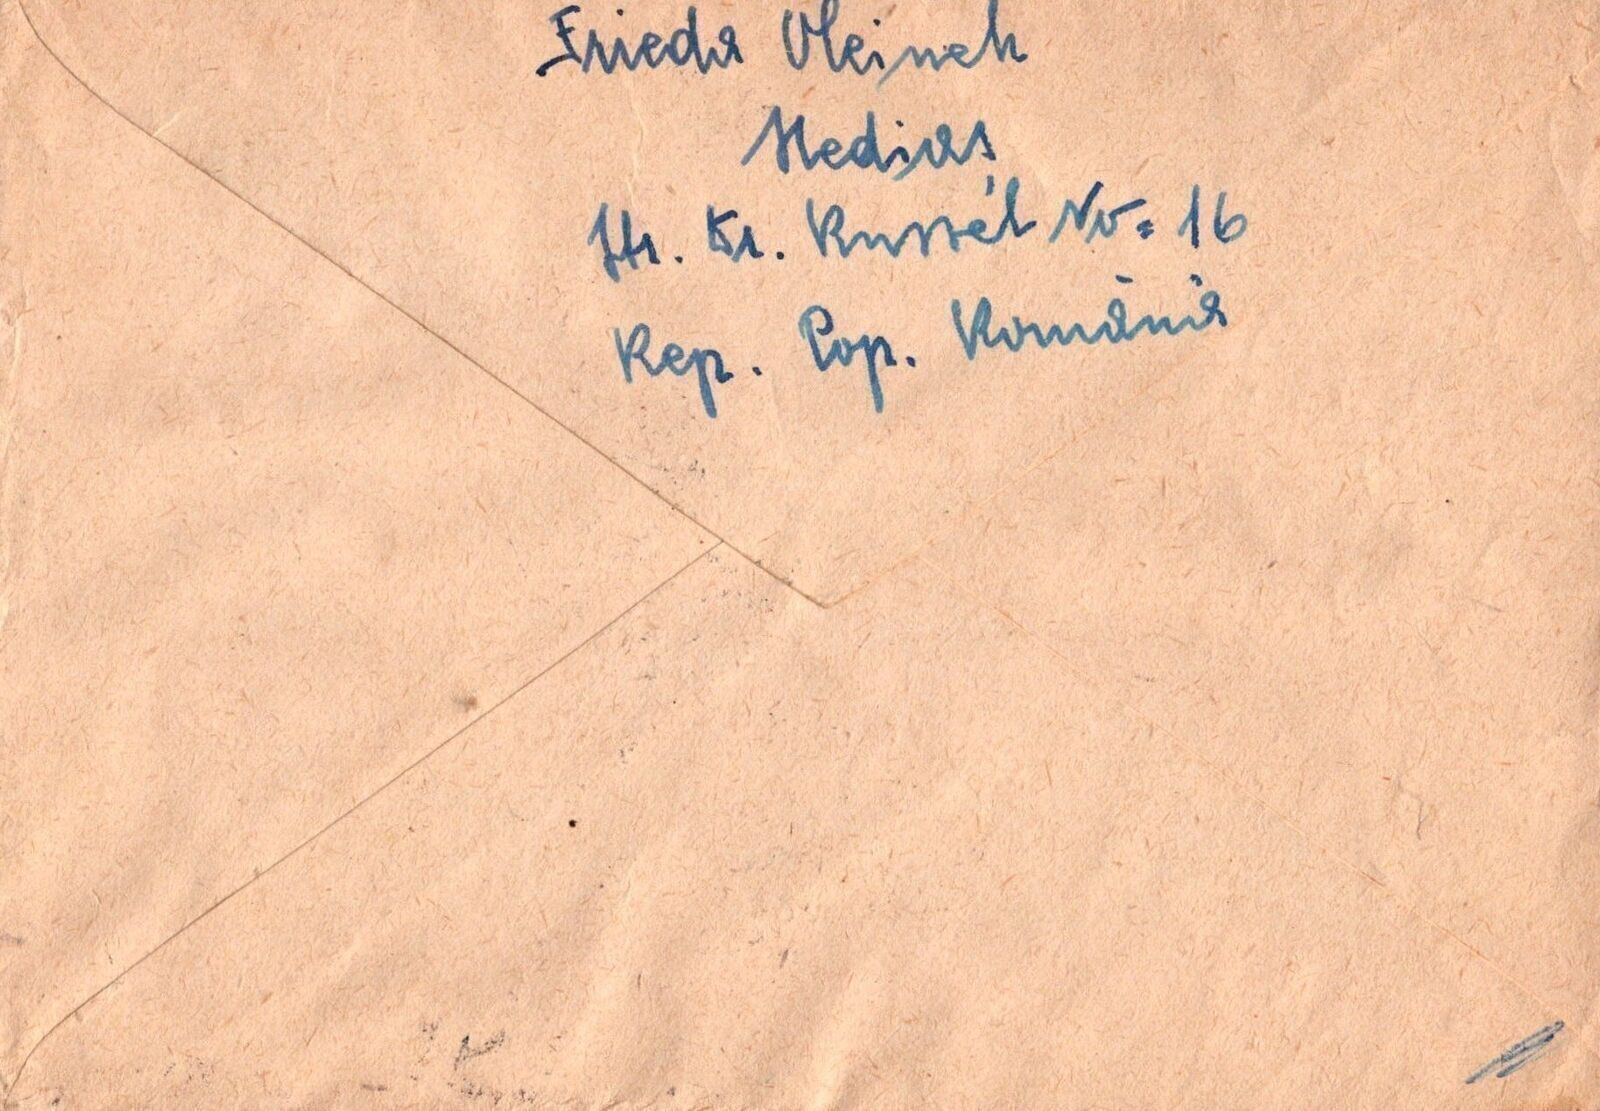 Frieda Oleinek
Medias
Str. Kr. Russel No. 16
Rep. Pop. Română